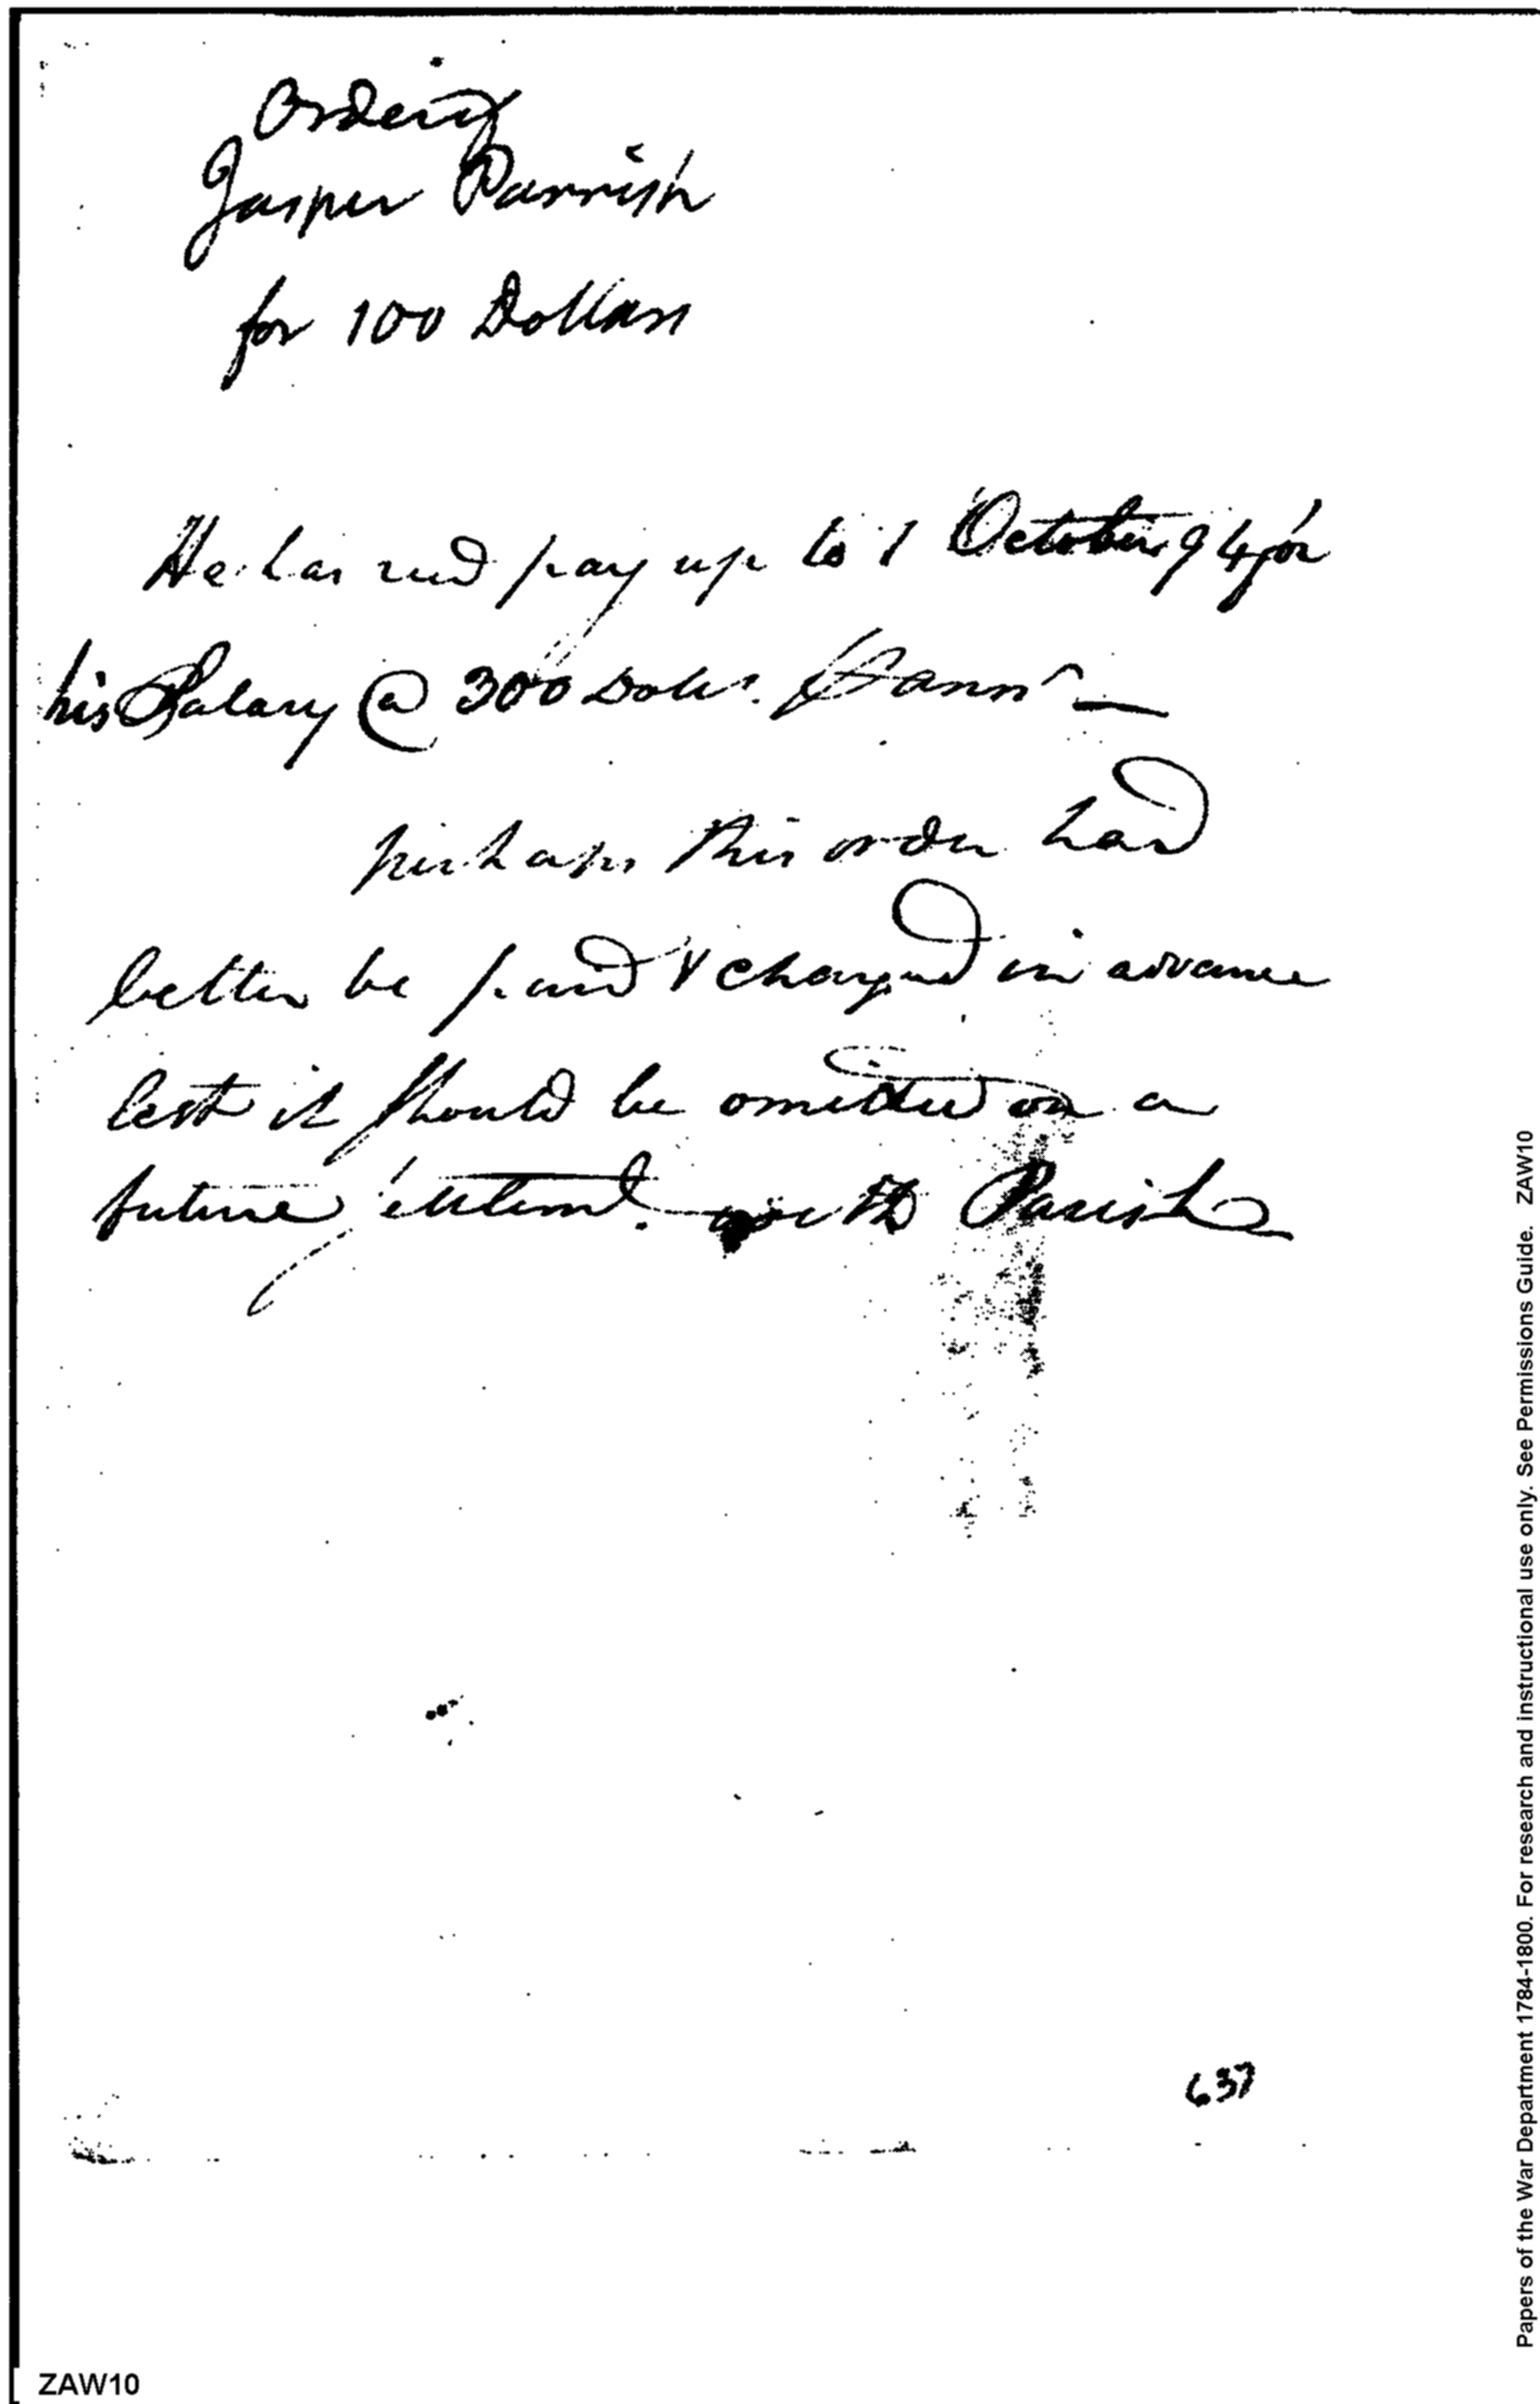 Order
Jasper Parrish
for 100 Dollars
He has recd pay up to 1 October 94 for
his Salary @ 300 Dolls. ann
perhaps this order had
better be paid & charged in advance
lest it should be omitted on a
future with Parish
637
ZAW10
Papers of the War Department 1784-1800. For research and instructional use only. See Permissions Guide. ZAW10